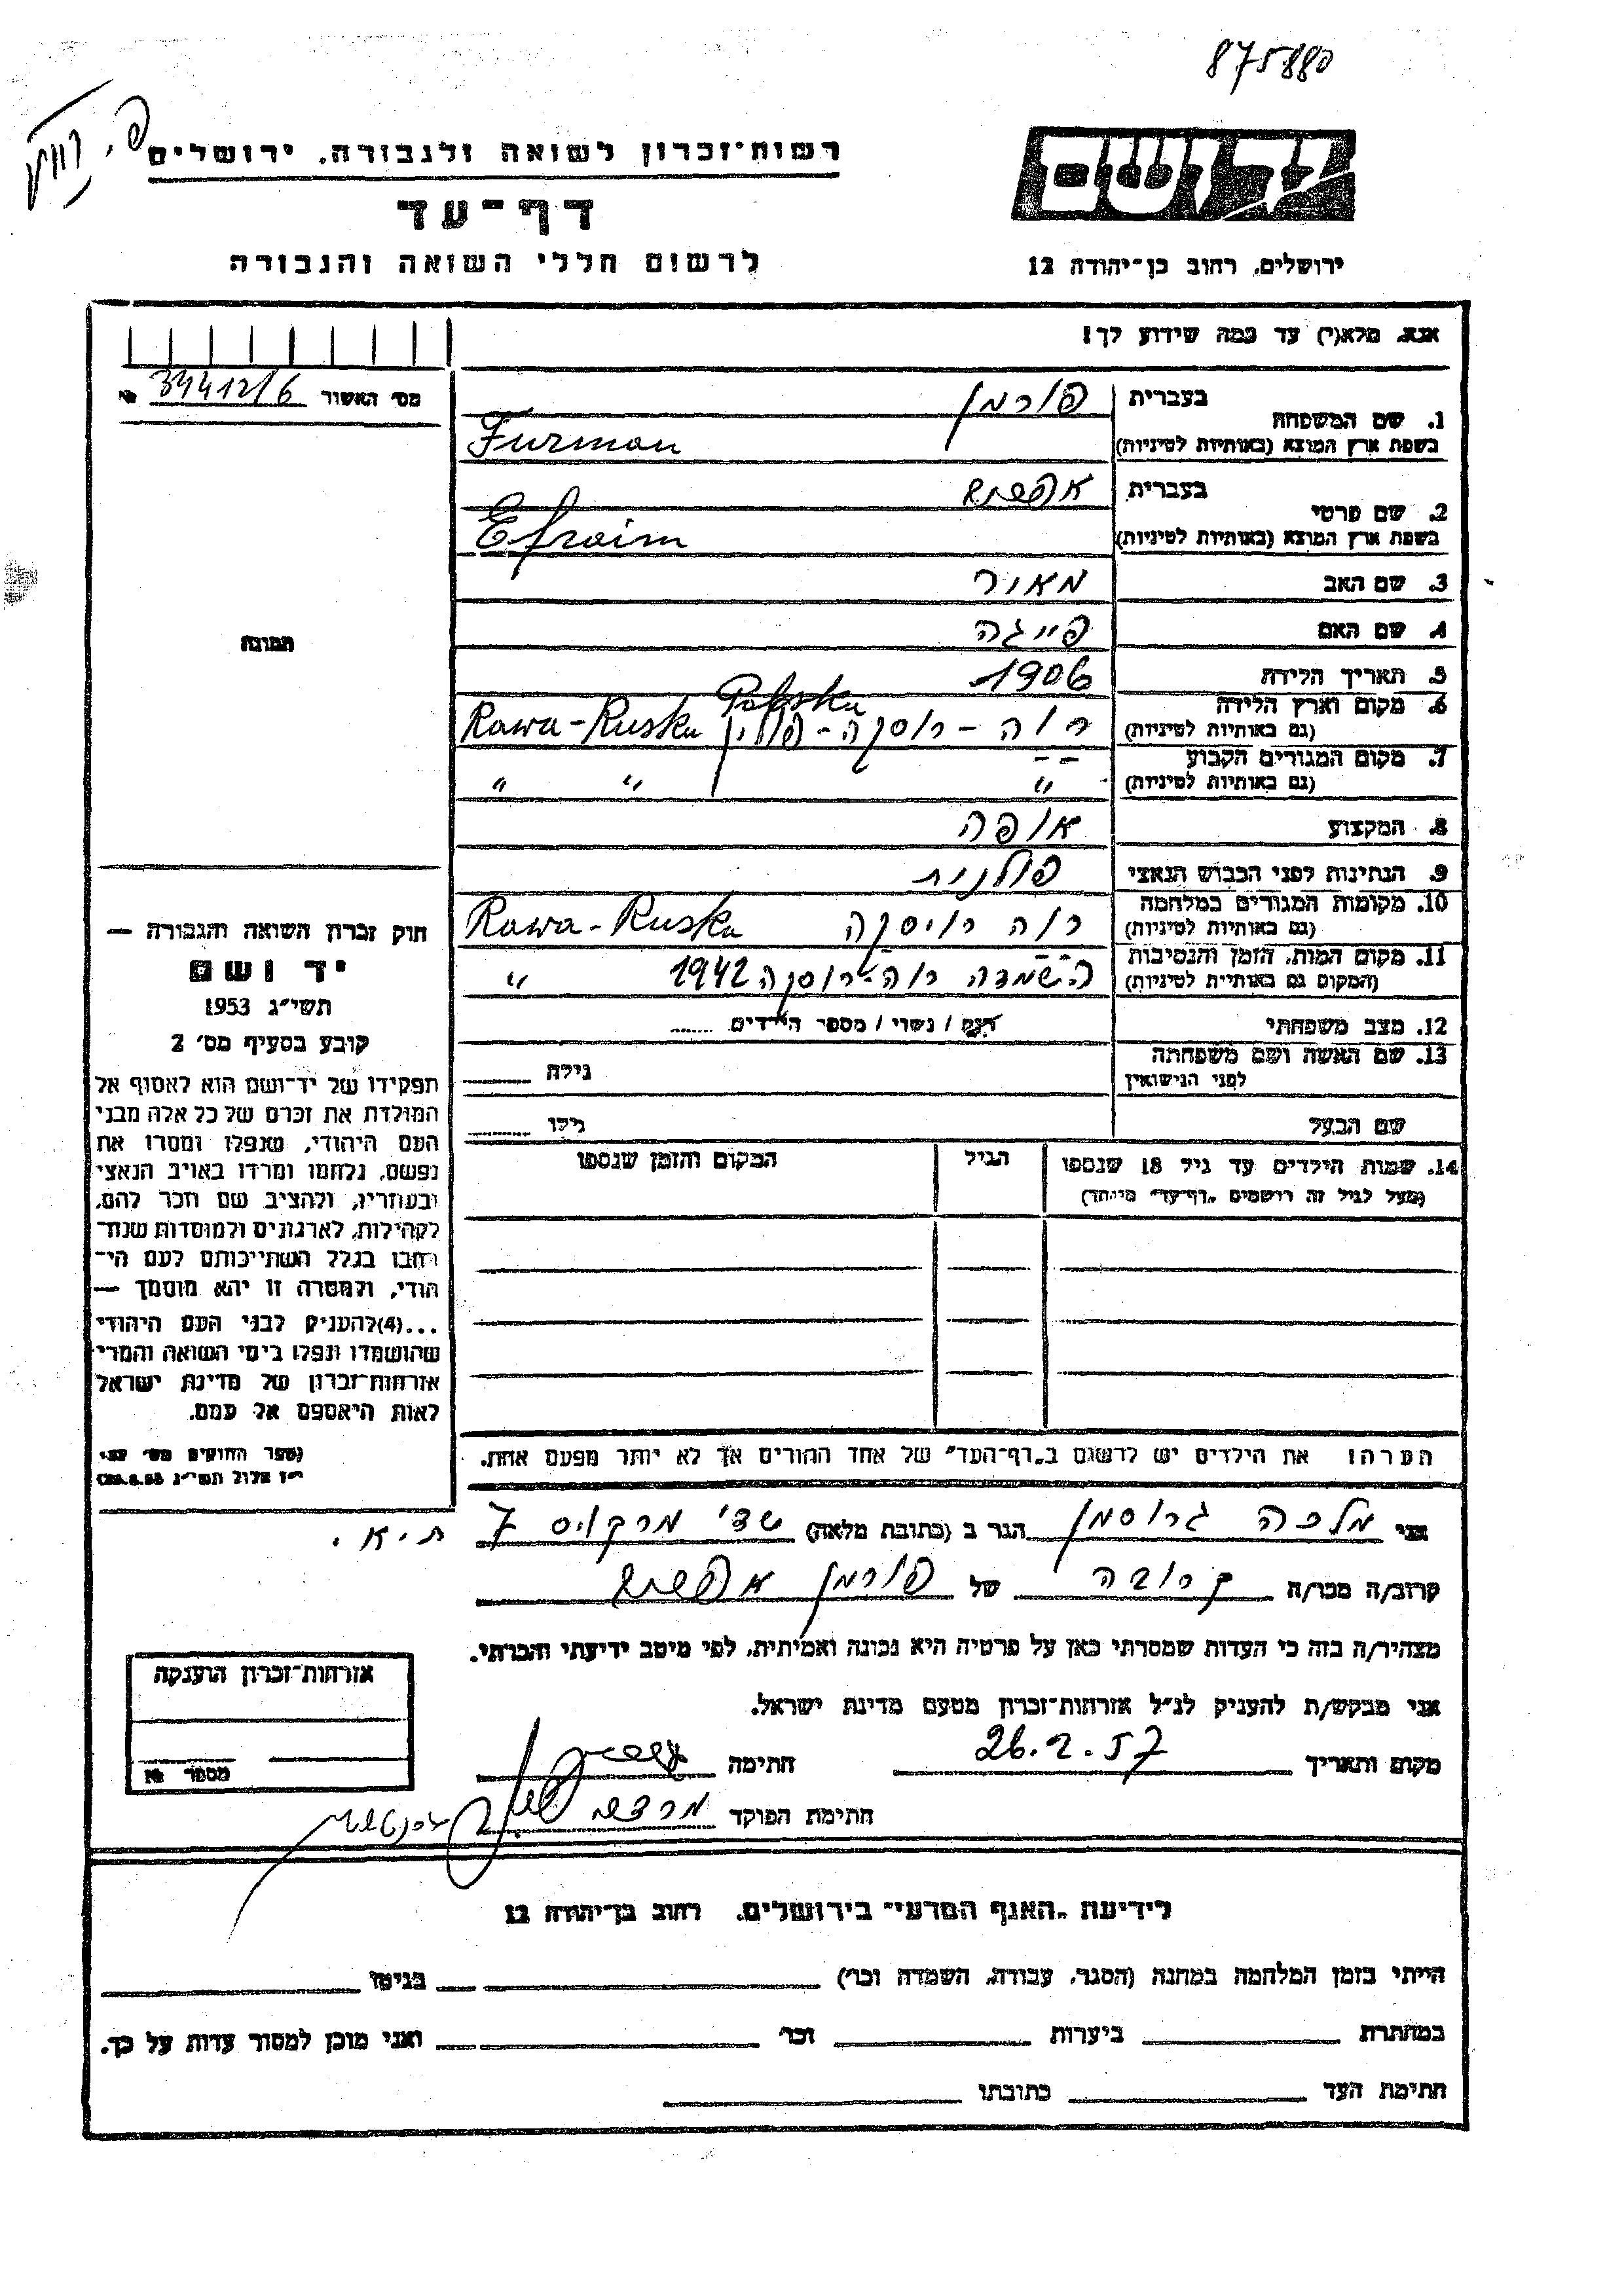 875880
רשות־זכרון לשואה ולגבורה, ירושלים
יד ושם
דף־עד
לרשום חללי השואה והגבורה
ירושלים, רחוב בן־יהודה 12
אנא, מלא(י) עד כמה שידוע לך!
מס׳ האשור 34412/6 №
1. שם המשפחה
בעברית פורמן
בשפת ארץ המוצא (באותיות לטיניות) Furman
2. שם פרטי
בעברית אפרים
בשפת ארץ המוצא (באותיות לטיניות) Efraim
3. שם האב מאיר
4. שם האם פייגה
5. תאריך הלידה 1906
6. מקום וארץ הלידה (גם באותיות לטיניות) רוה - רוסקה - פולין Rawa-Ruska Polska
7. מקום המגורים הקבוע (גם באותיות לטיניות) " " "
8. המקצוע אופה
9. הנתינות לפני הכבוש הנאצי פולנית
10. מקומות המגורים במלחמה (גם באותיות לטיניות) רוה רויסקה Rawa-Ruska
11. מקום המות, הזמן והנסיבות (המקום גם באותיות לטיניות) השמדה רוה-רוסקה 1942 "
12. מצב משפחתי רוק / נשוי / מספר הילדים
13. שם האשה ושם משפחתה לפני הנישואין גילה
שם הבעל גילו
14. שמות הילדים עד גיל 18 שנספו הגיל המקום והזמן שנספו
(מעל לגיל זה רושמים „דף־עד" מיוחד)
הערה: את הילדים יש לרשום ב„דף־העד" של אחד ההורים אך לא יותר מפעם אחת.
התמונה
חוק זכרון השואה והגבורה —
יד ושם
תשי״ג 1953
קובע בסעיף מס׳ 2
תפקידו של יד־ושם הוא לאסוף אל
המולדת את זכרם של כל אלה מבני
העם היהודי, שנפלו ומסרו את
נפשם, נלחמו ומרדו באויב הנאצי
ובעוזריו, ולהציב שם וזכר להם,
לקהילות, לארגונים ולמוסדות שנח־
רבו בגלל השתייכותם לעם הי־
הודי, ולמטרה זו יהא מוסמך —
...(4) להעניק לבני העם היהודי
שהושמדו ונפלו בימי השואה והמרי
אזרחות־זכרון של מדינת ישראל
לאות היאספם אל עמם.
(ספר החוקים מס׳
י״ז אלול תשי״ג
אני מלכה גרוסמן הגר ב (כתובת מלאה) שד׳ מרקוס 7 ת.א.
קרוב/ה מכר/ה קרובה של פורמן אפרים
מצהיר/ה בזה כי העדות שמסרתי כאן על פרטיה היא נכונה ואמיתית, לפי מיטב ידיעתי והכרתי.
אני מבקש/ת להעניק לנ״ל אזרחות־זכרון מטעם מדינת ישראל.
מקום ותאריך 26.2.57 חתימה
חתימת הפוקד
אזרחות־זכרון הוענקה
מספר №
לידיעת „האגף המדעי" בירושלים, רחוב בן־יהודה 12
הייתי בזמן המלחמה במחנה (הסגר, עבודה, השמדה וכו׳) בגיטו
במחתרת ביערות וכו׳ ואני מוכן למסור עדות על כך.
חתימת העד כתובתו